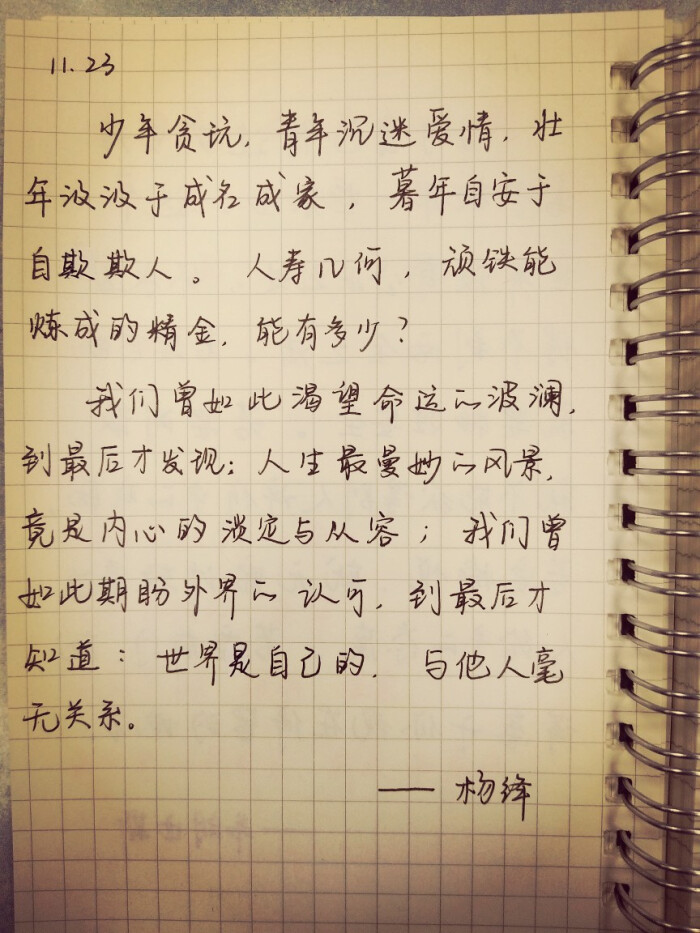 11.23
少年贪玩,青年沉迷爱情,壮
年汲汲于成名成家,暮年自安于
自欺欺人。人寿几何,顽铁能
炼成的精金,能有多少?
我们曾如此渴望命运的波澜,
到最后才发现:人生最曼妙的风景,
竟是内心的淡定与从容;我们曾
如此期盼外界的认可,到最后才
知道:世界是自己的.与他人毫
无关系。
——杨绛